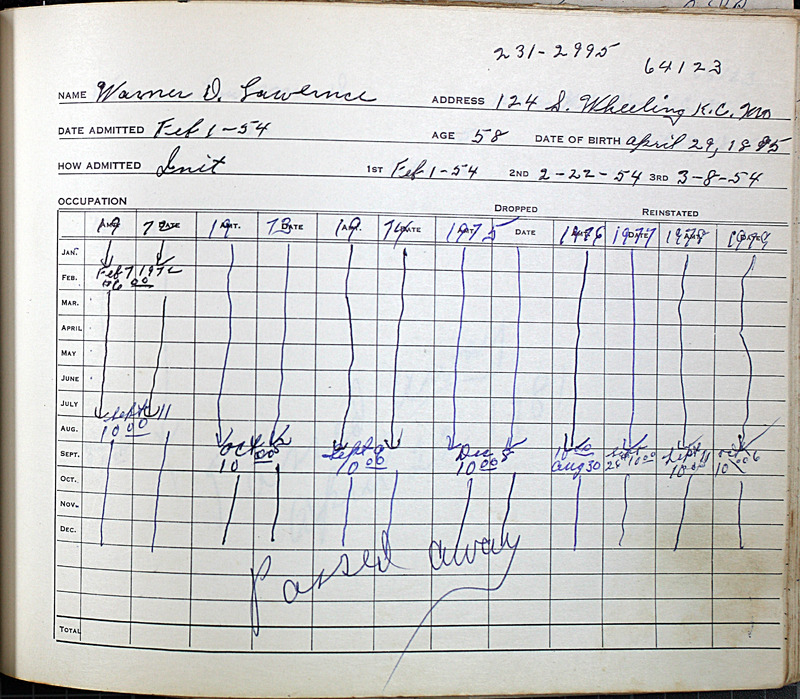 231-2995 64123
NAME Warner D. Lawernce ADDRESS 124 S. Wheeling K.C. Mo
DATE ADMITTED Feb 1-54 AGE 58 DATE OF BIRTH april 29, 1895
HOW ADMITTED Init 1ST Feb 1-54 2ND 2-22-54 3RD 3-8-54
OCCUPATION DROPPED REINSTATED
19 72 19 73 19 74 1975 DATE 1976 1977 1978 1979
JAN.
FEB. Feb 7 1972
00
MAR.
APRIL
MAY
JUNE
JULY Sept 11
AUG. 10 00
SEPT. Oct 10 00 Sept 9 10 00 Dec 8 10 00 10 00 Aug 30 Sept 28 10 00 Sept 11 10 00 Oct 6 10 00
OCT.
NOV.
DEC.
Passed away
TOTAL